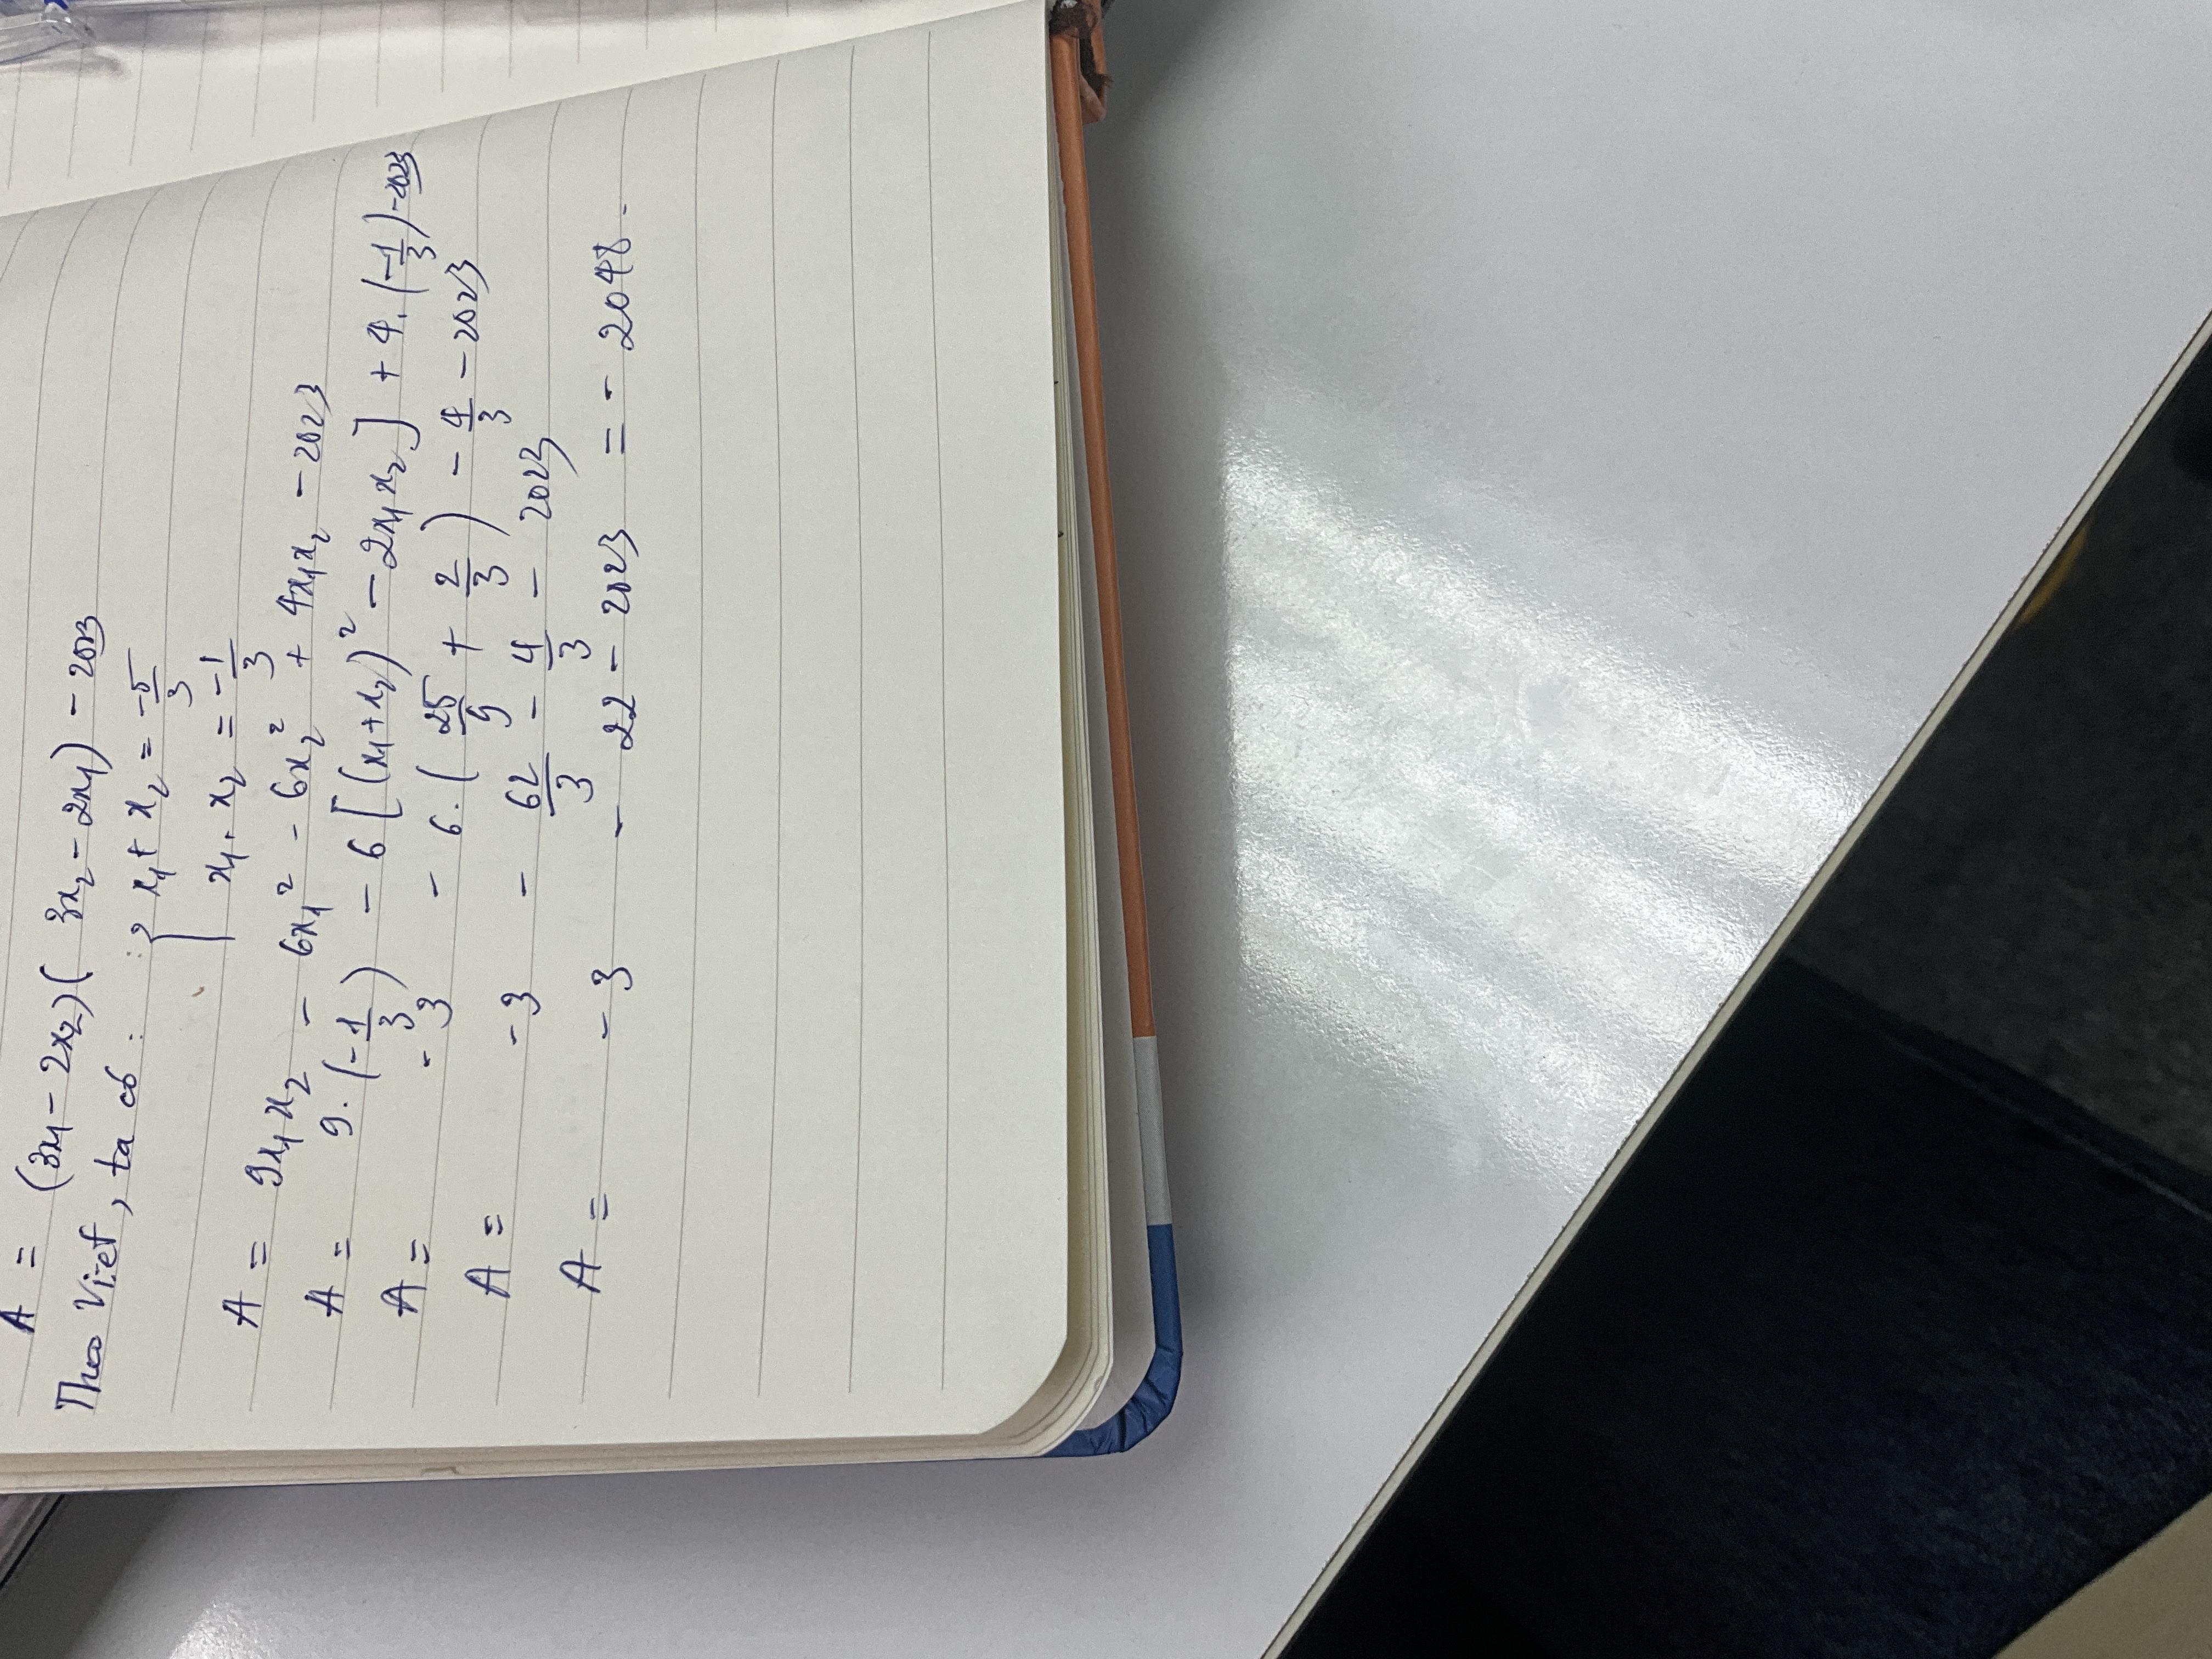 A = (3x₁ - 2x₂)(3x₂ - 2x₁) - 2023
Theo Viet, ta có : { x₁ + x₂ = -5/3
x₁ . x₂ = -1/3
A = 9x₁x₂ - 6x₁² - 6x₂² + 4x₁x₂ - 2023
A = 9.(-1/3) - 6[(x₁+x₂)² - 2x₁x₂] + 4.(-1/3) - 2023
A = -3 - 6.(25/9 + 2/3) - 4/3 - 2023
A = -3 - 62/3 - 4/3 - 2023
A = -3 - 22 - 2023 = - 2048.